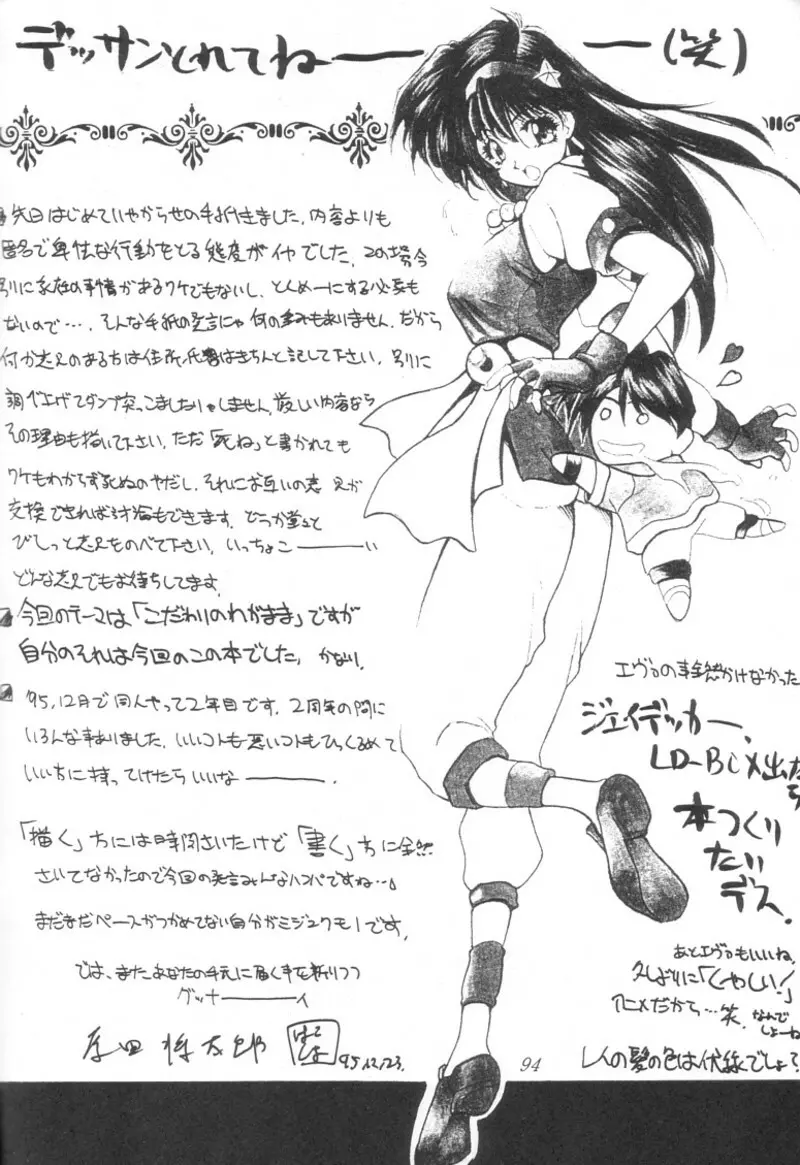 デッサンとれてねーーー(笑)
先日はじめていやがらせの手紙きました。内容よりも
匿名で卑怯な行動をとる態度がイヤでした。この場合
別に家庭の事情があるワケでもないし、とくめーにする必要も
ないので…。そんな手紙の発言にゃ何の重みもありません。だから
何か意見のある方は住所・氏名はきちんと記して下さい。別に
調べ上げてダンプ突っこましたりゃしません。厳しい内容なら
その理由も描いて下さい。ただ「死ね」と書かれても
ワケもわからず死ぬのやだし、それにお互いの意見が
交換できれば対論もできます。どうか堂々と
びしっと意見をのべて下さい。いっちょこーーーい
どんな意見でもお待ちしてます。
今回のテーマは「こだわりのわがまま」ですが
自分のそれは今回のこの本でした。かなり。
'95,12月で同人やって2年目です。2周年の間に
いろんな事ありました。いいコトも悪いコトもひっくるめて
いい方に持ってけたらいいなーーー。
「描く」方には時間さいたけど「書く」方に全然
さいてなかったので今回の発言みんなハンパですね…。
まだまだペースがつかめてない自分がミジュクモノです。
では、また、あなたの手元に届く事を祈りつつ
グッナーーーイ
'95,12,23.
94
エヴァの事全然かけなかった
ジェイデッカー、
LD-BOX出たら
本つくり
たい
デス。
あとエヴァもいいね。
久しぶりに「くやしい!」
アニメだから…笑。なんで
しょーね
レイの髪の色は伏線でしょ?